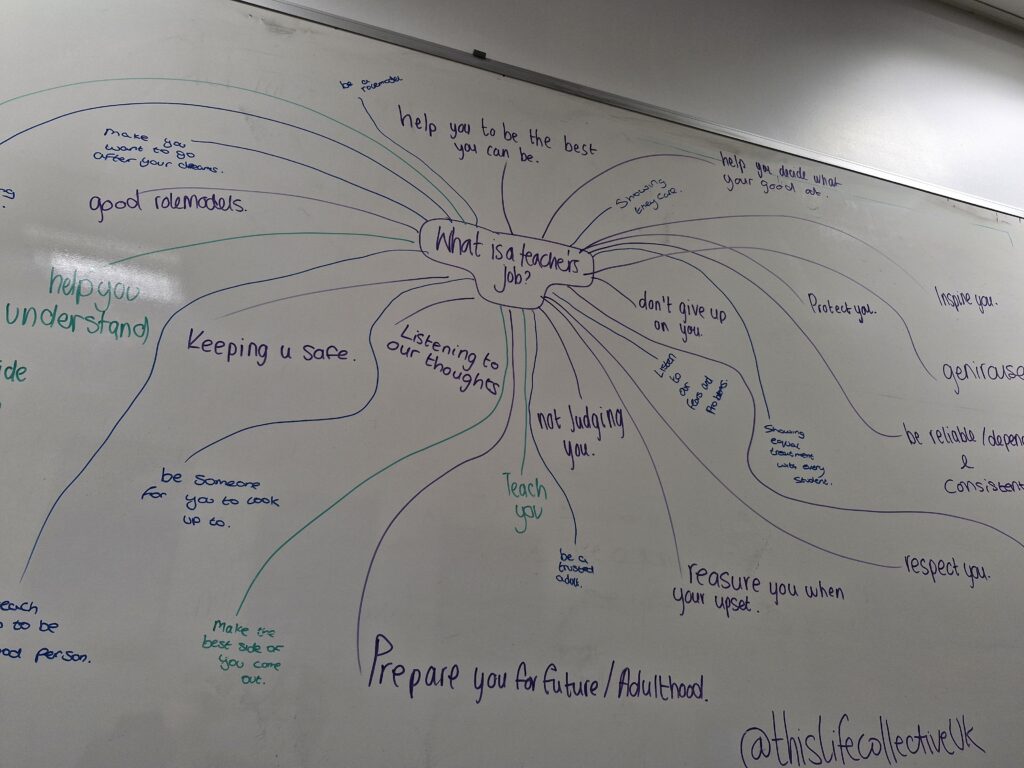 What is a teachers
Job?
be a
rolemodel
help you to be the best
you can be.
help you decide what
your good at.
Showing
they care.
Make you
want to go
after your dreams.
good rolemodels.
help you
understand
Keeping u safe.
Listening to
our thoughts
don't give up
on you.
Protect you.
Inspire you.
Listen
to our
fears and
Problems.
not Judging
you.
Showing
equal
treatment
with every
student.
be reliable/depen
&
Consistent
be someone
for you to look
up to.
Teach
you
be a
trusted
adult.
respect you.
reasure you when
your upset.
each
to be
person.
Make the
best side of
you come
out.
Prepare you for future/Adulthood.
@thislifecollectiveUk